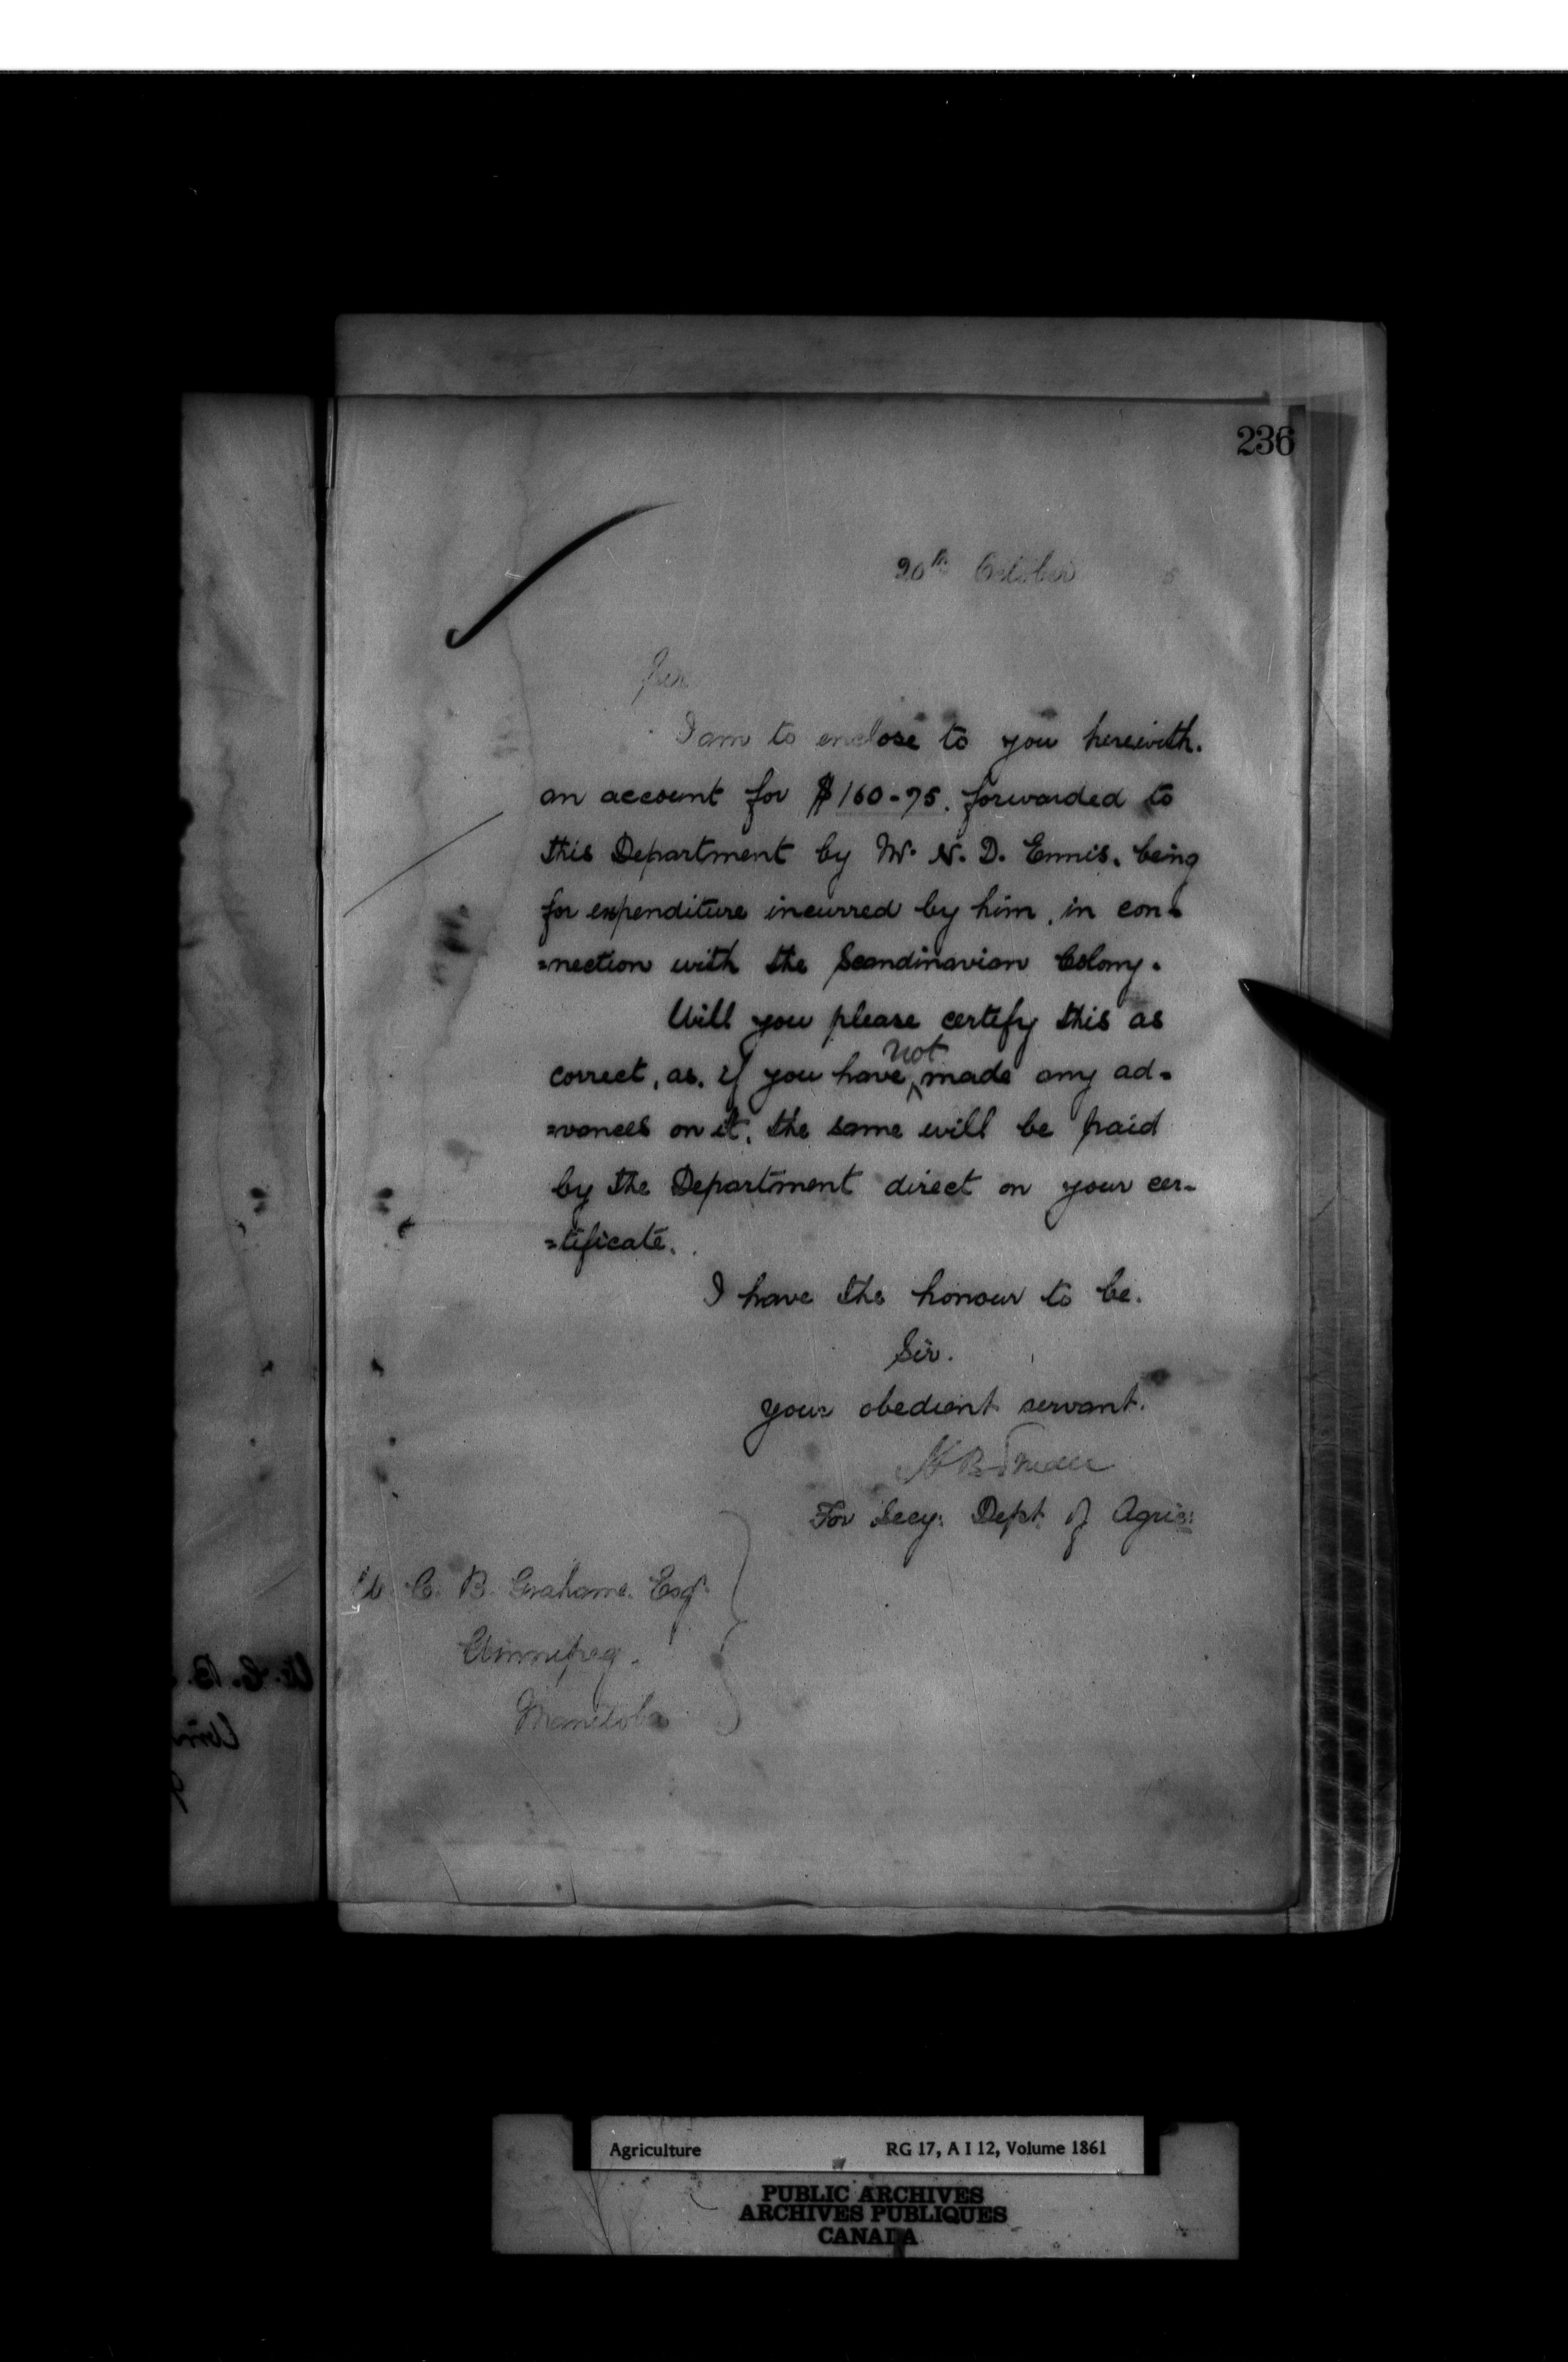 236
20th October 5
Sir
I am to enclose to you herewith.
an account for $160-75. forwarded to
this Department by Mr. N. D. Ennis. being
for expenditure incurred by him, in con-
=nection with the Scandinavian Colony.
Will you please certify this as
correct, as. if you have not made any ad-
=vances on it, the same will be paid
by the Department direct on your cer-
=tificate.
I have the honour to be.
Sir.
your obedient servant.
H B Small
For Secy: Dept. of Agric:
W. C. B. Grahame. Esqr.
Winnipeg.
Manitoba
Agriculture RG 17, A I 12, Volume 1861
PUBLIC ARCHIVES
ARCHIVES PUBLIQUES
CANADA